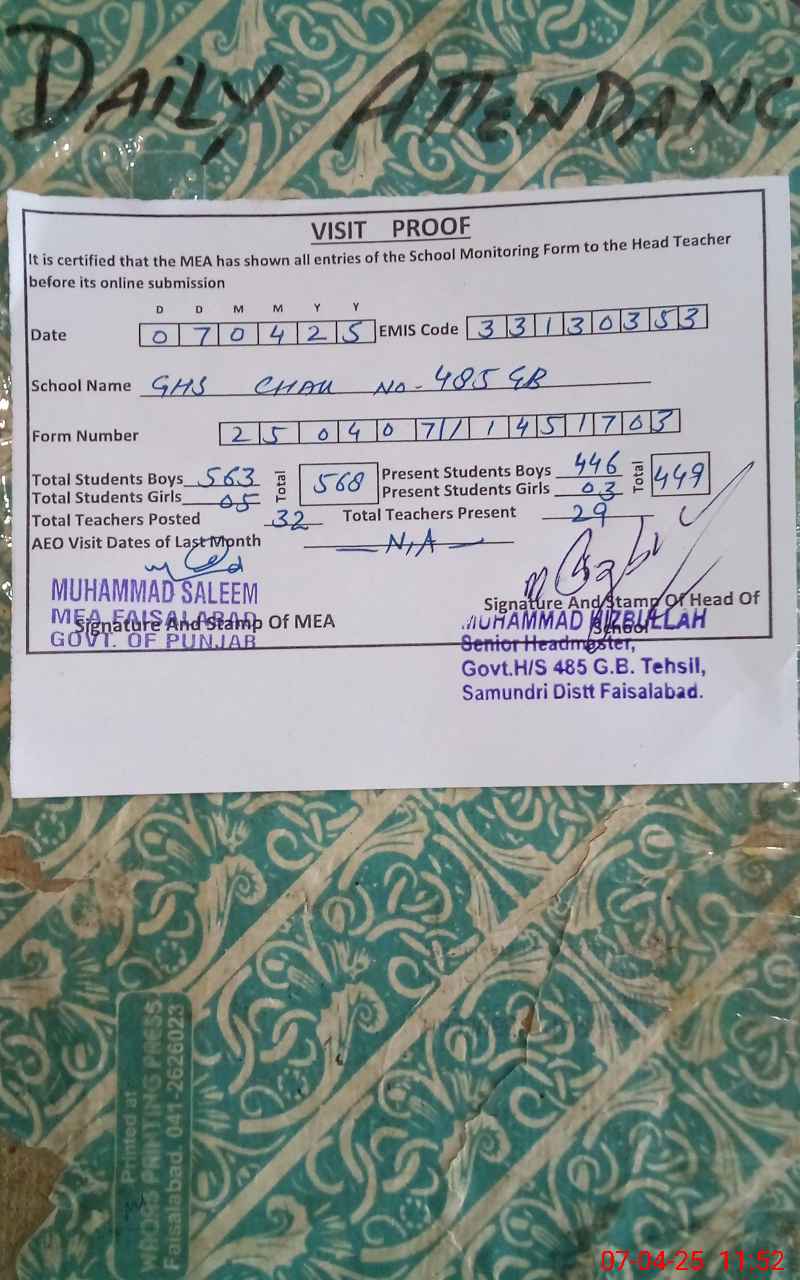 DAiLY ATTENDANC
VISIT PROOF
It is certified that the MEA has shown all entries of the School Monitoring Form to the Head Teacher
before its online submission
D D M M Y Y
Date 0 7 0 4 2 5 EMIS Code 3 3 1 3 0 3 5 3
School Name GHS CHAK No- 485 GB
Form Number 2 5 0 4 0 7 / 1 1 4 5 1 7 0 3
Total Students Boys 563 Total 568 Present Students Boys 446 Total 449
Total Students Girls 05 Present Students Girls 03
Total Teachers Posted 32 Total Teachers Present 29
AEO Visit Dates of Last Month N,A
MUHAMMAD SALEEM
MEA FAISALABAD
Signature And Stamp Of MEA
GOVT. OF PUNJAB
Signature And Stamp Of Head Of
School
MUHAMMAD HIZBULLAH
Senior Headmaster,
Govt.H/S 485 G.B. Tehsil,
Samundri Distt Faisalabad.
Printed at
PRINTING PRESS
Faisalabad. 041-2626023
07-04-25 11:52